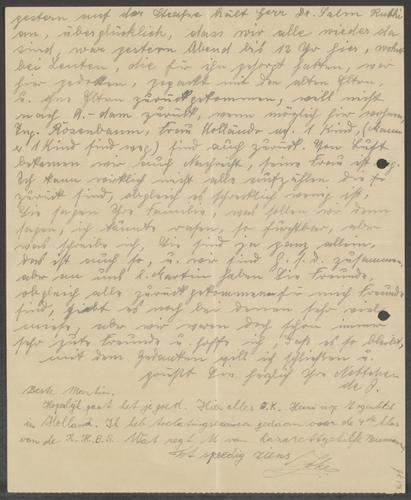 gestern auf der Strasse hält Herr Dr. Salm
an, überglücklich, dass wir alle wieder da
sind, war gestern Abend bis 12 Uhr hier, wohnt
bei Leuten, die für ihn gesorgt hatten, war
hier mit den alten Eltern
u. Eltern zurückgekommen, will nicht
nach A.-dam zurück, wenn möglich hier wohnen,
Eug. Rosenbaum, Frau Holländer m. 1 Kind, (Mann
u 1 Kind sind weg) sind auch zurück. Von
bekamen wir auch Nachricht, seine Frau ist
Ich kann wirklich nicht alle aufzählen die
zurück sind, obgleich es schrecklich wenig ist.
Sie sagen Ihre Familie, was sollen wir denn
sagen, ich könnte rasen, so furchtbar, aber
was schreibe ich, Sie sind ja ganz allein,
das ist auch so, u. wir sind G. s. d. zusammen,
aber an uns l. Martin haben Sie Freunde,
obgleich alle für mich Freunde
sind, giebt es noch bei denen sehr viel
miese, aber wir waren doch schon immer
sehr gute Freunde u. hoffe ich, dass es so bleibt,
mit dem Gedanken will ich schliessen u.
grüsst Sie herzlich Ihre
Beste Martin.
Hopelijk gaat het je goed. Hier alles O.K.
in Holland. Ik heb toelatingsexamen gedaan voor de 4de klas
van de R.H.B.S. Wat zegt U van
Tot spoedig ziens